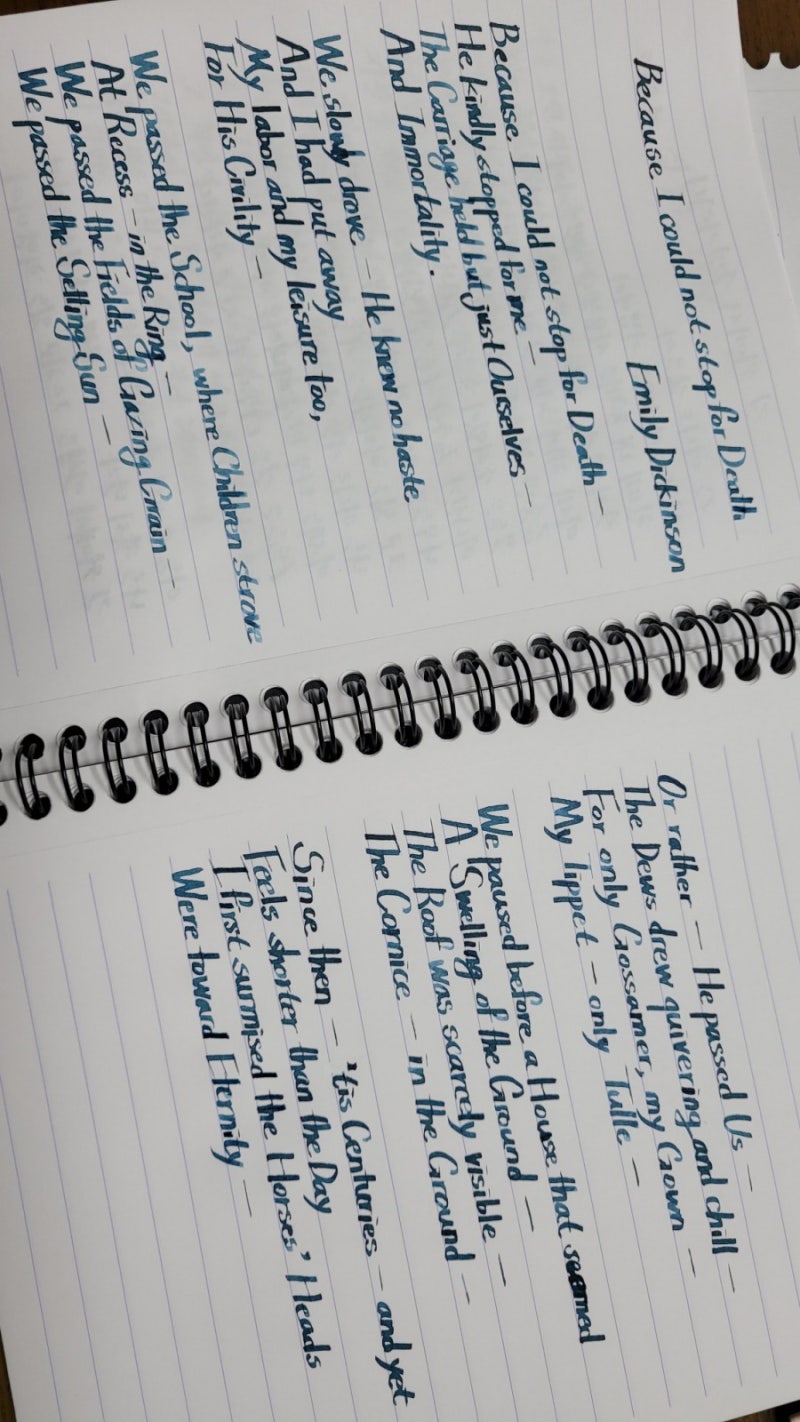 Because I could not stop for Death
Emily Dickinson
Because I could not stop for Death –
He kindly stopped for me –
The Carriage held but just Ourselves –
And Immortality.
We slowly drove – He knew no haste
And I had put away
My labor and my leisure too,
For His Civility –
We passed the School, where Children strove
At Recess – in the Ring –
We passed the Fields of Gazing Grain –
We passed the Setting Sun –
Or rather – He passed Us –
The Dews drew quivering and chill –
For only Gossamer, my Gown –
My Tippet – only Tulle –
We paused before a House that seemed
A Swelling of the Ground –
The Roof was scarcely visible –
The Cornice – in the Ground –
Since then – 'tis Centuries – and yet
Feels shorter than the Day
I first surmised the Horses' Heads
Were toward Eternity –